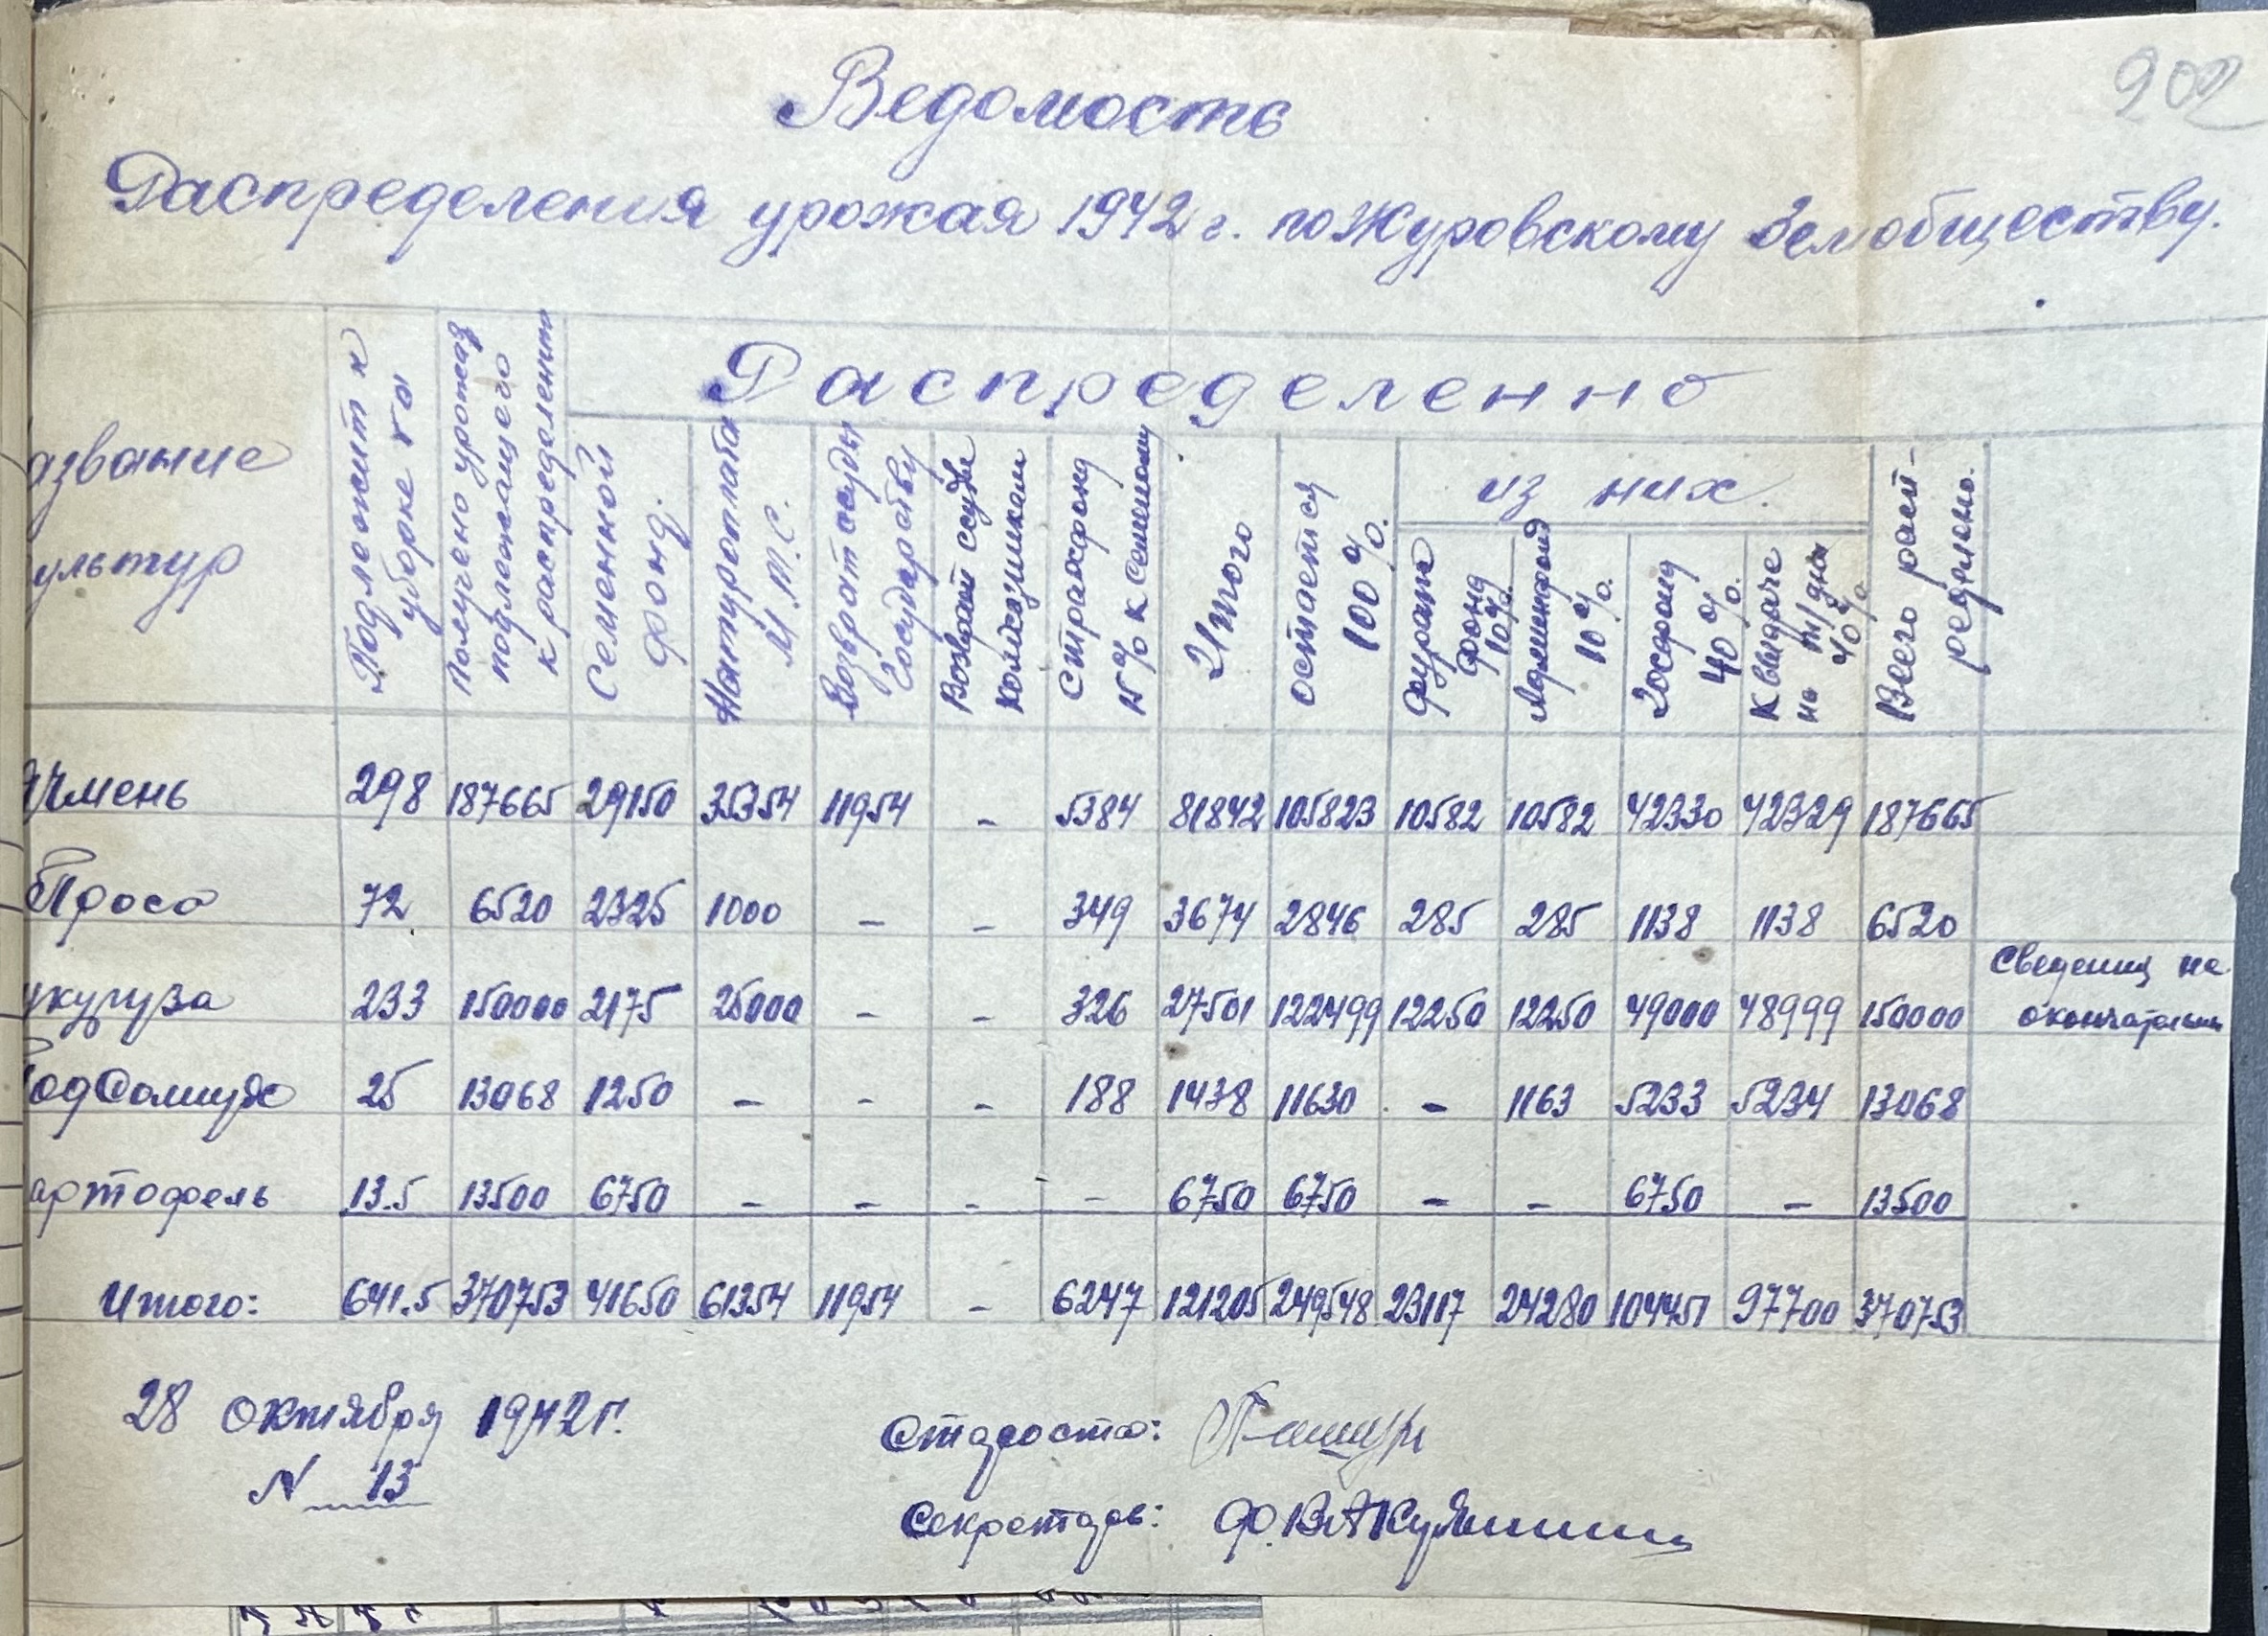 902
Ведомость
Распределения урожая 1942 г. по Журовскому Земобществу.
азвание
ультур
Подлежит к
уборке га
Получено урожая
подлежащего
к распределению
Распределенно
Семенной
фонд.
Натуроплата
М.Т.С.
Возврат ссуды
Государству
Возврат ссуды
колхозникам
Страхфонд
15% к Семенному
Итого
остается
100%.
из них.
Фураж
фонд
10%
Админфонд
10%.
Госфонд
40%.
К выдаче
на т/дни
40%
Всего расп-
ределено.
Ячмень 298 187665 29150 35354 11954 - 5384 81842 105823 10582 10582 42330 42329 187665
Просо 72 6520 2325 1000 - - 349 3674 2846 285 285 1138 1138 6520
укуруза 233 150000 2175 25000 - - 326 27501 122499 12250 12250 49000 48999 150000 Сведения не
окончательны
Подсолнух 25 13068 1250 - - - 188 1438 11630 - 1163 5233 5234 13068
артофель 13.5 13500 6750 - - - - 6750 6750 - - 6750 - 13500
Итого: 641.5 370753 41650 61354 11954 - 6247 121205 249548 23117 24280 104451 97700 370753
28 октября 1942 г.
N 13
Староста:
Секретарь: